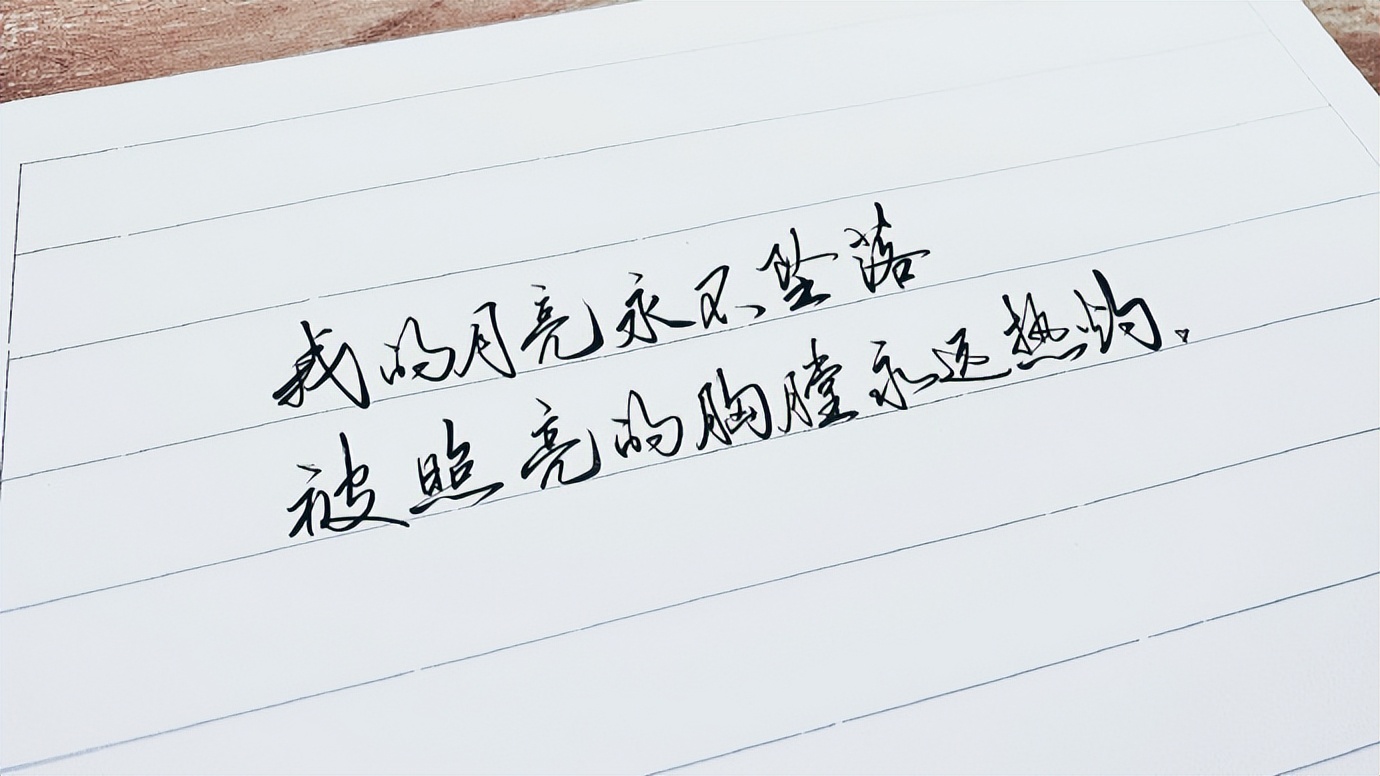 我的月亮永不坠落
被照亮的胸膛永远热灼。